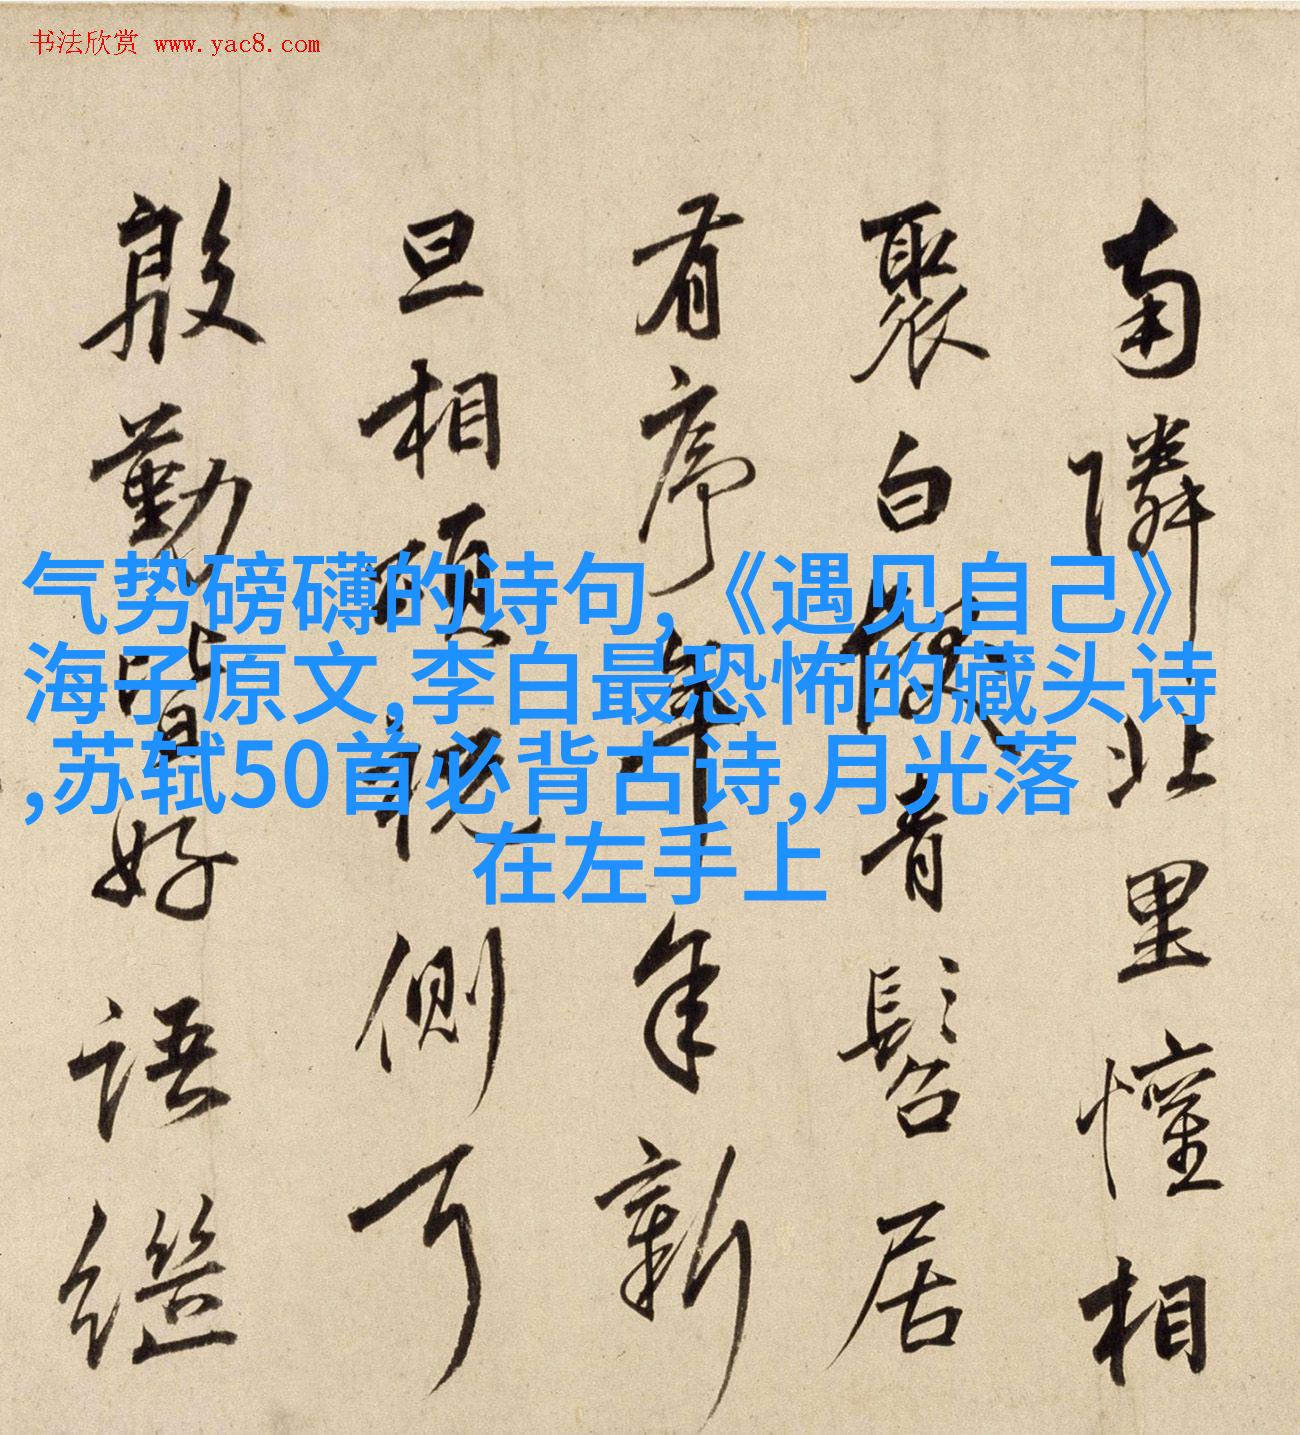 书法欣赏 www.yac8.com
南隣北里懽相
聚白傁青髫居
有序年年新
旦相顧視側
殷勤皆好語繼
气势磅礴的诗句,《遇见自己》
海子原文,李白最恐怖的藏头诗
,苏轼50首必背古诗,月光落
在左手上